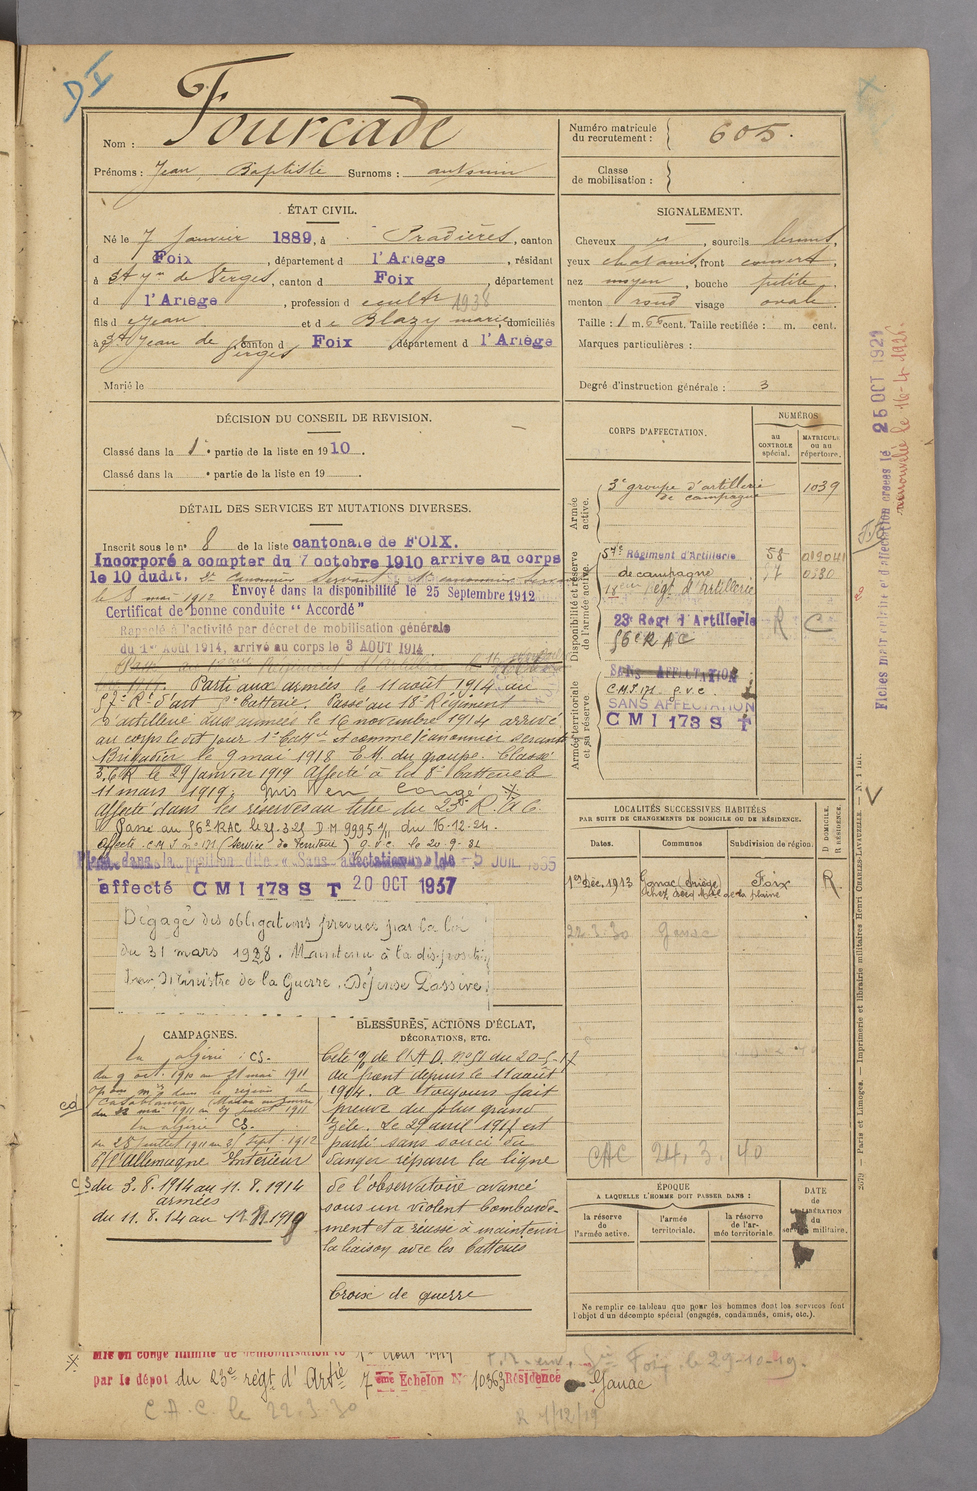 D
Nom : Fourcade
Prénoms : Jean Baptiste Surnoms : antonin
Numéro matricule
du recrutement : 605.
Classe
de mobilisation :
ÉTAT CIVIL.
Né le 7 Janvier 1889, à Pradières, canton
d Foix, département d l'Ariège, résidant
à St Jean de Verges, canton d Foix, département
d l'Ariège, profession d cultr 1938
fils d e Jean et d e Blazy marie, domiciliés
à St Jean de Verges canton d Foix, département d l'Ariège
Marié le
SIGNALEMENT.
Cheveux et, sourcils bruns,
yeux chatains, front couvert,
nez moyen, bouche petite,
menton rond visage ovale.
Taille : 1 m. 65 cent. Taille rectifiée : m. cent.
Marques particulières :
Degré d'instruction générale : 3
DÉCISION DU CONSEIL DE REVISION.
Classé dans la 1e partie de la liste en 1910.
Classé dans la e partie de la liste en 19
DÉTAIL DES SERVICES ET MUTATIONS DIVERSES.
Inscrit sous le no 8 de la liste cantonale de FOIX.
Incorporé a compter du 7 octobre 1910 arrive au corps
le 10 dudit, 2e canonnier servant
le 8 mai 1912 Envoyé dans la disponibilité le 25 Septembre 1912
Certificat de bonne conduite "Accordé"
Rappelé à l'activité par décret de mobilisation générale
du 1er Août 1914, arrivé au corps le 3 AOUT 1914
Parti aux armées le 11 août 1914 au
57e Rt d'art batterie. Passé au 18e Régiment
d'artillerie aux armées le 16 novembre 1914 arrivé
au corps le dit jour 1e Batie et comme canonnier servant
Brigadier le 9 mai 1918 E.M. du groupe. Classé
le 29 janvier 1919 Affecté à la 8e batterie le
11 mars 1919; mis en congé
Affecté dans les réserves au titre du 23e R.A.C.
Passé au 56e RAC le 25-3-25 D.M. 9995 du 16-12-24.
affecté C.M.I. no 171 (service de Territoire) g.v.c. le 20-9-31
Placé dans la position dite "Sans affectation" le 5 JUIL 1935
affecté CMI 173 S T 20 OCT 1937
Dégagé des obligations prévues par la loi
du 31 mars 1928. Maintenu à la disposition
du Ministre de la Guerre. Défense Passive.
CORPS D'AFFECTATION.
NUMÉROS
au
CONTROLE
spécial.
MATRICULE
ou au
répertoire.
Armée
active.
3e groupe d'artillerie
de campagne 1039
Disponibilité et réserve
de l'armée active.
57e Régiment d'Artillerie 58
de campagne
18eme Régt d'Artillerie
23e Régt d'Artillerie R C
56e RAC
Armée territoriale
et sa réserve
SANS AFFECTATION
C.M.I. 171 g.v.c.
SANS AFFECTATION
CMI 173 S T
Fiches matricules et d'affectation créées le 25 OCT 1921
renouvelée le 16-4-192
LOCALITÉS SUCCESSIVES HABITÉES
PAR SUITE DE CHANGEMENTS DE DOMICILE OU DE RÉSIDENCE.
Dates. Communes Subdivision de région. D DOMICILE. R RÉSIDENCE.
1er Déc. 1913 Ganac (Ariège) Foix R.
22-3-30 Ganac
CAC 24. 3. 40
CAMPAGNES.
En algérie : CS.
du 9 oct. 1910 au 21 mai 1911
dans la région de
Casablanca
du 22 mai 1911 au 27 juillet 1911
En algérie CS.
du 28 juillet 1911 au Sept. 1912
C/ l'Allemagne Intérieur
CS du 3.8.1914 au 11.8.1914
armées
du 11.8.14 au
BLESSURES, ACTIONS D'ÉCLAT,
DÉCORATIONS, ETC.
Cité O. de l'A.D. no 51 du 20-5-17
au front depuis le 11 août
1914. a toujours fait
preuve du plus grand
zèle. Le 29 avril 1917 est
parti sans souci du
danger réparer la ligne
de l'observatoire avancé
sous un violent bombarde-
ment et a réussi à maintenir
la liaison avec les batteries
Croix de guerre
ÉPOQUE
A LAQUELLE L'HOMME DOIT PASSER DANS :
la réserve
de
l'armée active.
l'armée
territoriale.
la réserve
de l'ar-
mée territoriale.
DATE
de
LA LIBÉRATION
du
service militaire.
Ne remplir ce tableau que pour les hommes dont les services font
l'objet d'un décompte spécial (engagés, condamnés, omis, etc.).
2079. — Paris et Limoges. — Imprimerie et librairie militaires Henri CHARLES-LAVAUZELLE. — N. 1
Mis en congé illimité de démobilisation le 1er Août 1919
par le dépot du 23e régt d'Artie 7eme Echelon No 10363 Résidence Ganac
Foix le 29-10-19.
C.A.C. le 22.3.30
R 1/12/19